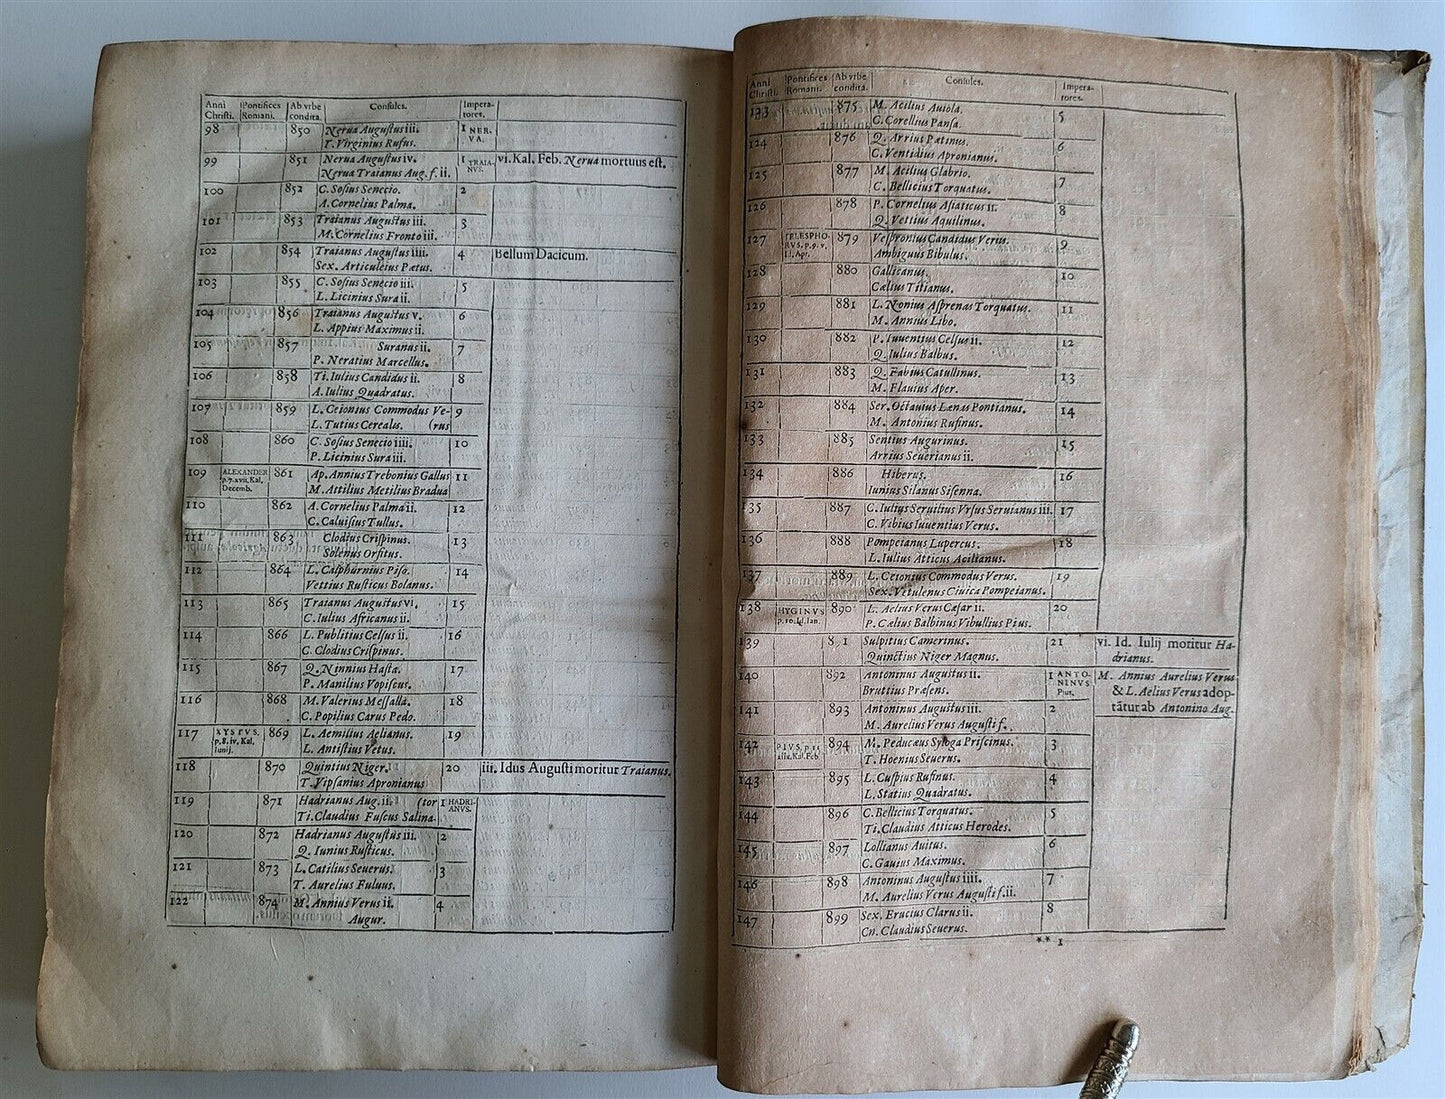 Anni Christi. Pontifices Romani. Ab vrbe condita. Consules. Impera-tores.
98 850 Nerua Augustus iii. 1 NER-VA.
T. Virginius Rufus.
99 851 Nerua Augustus iv. 1 TRAIA-NVS. vi. Kal. Feb. Nerua mortuus est.
Nerua Traianus Aug. f. ii.
100 852 C. Sosius Senecio. 2
A. Cornelius Palma.
101 853 Traianus Augustus iii. 3
M. Cornelius Fronto iii.
102 854 Traianus Augustus iiii. 4 Bellum Dacicum.
Sex. Articuleius Pætus.
103 855 C. Sosius Senecio iii. 5
L. Licinius Sura ii.
104 856 Traianus Augustus v. 6
L. Appius Maximus ii.
105 857 Suranus ii. 7
P. Neratius Marcellus.
106 858 Ti. Iulius Candidus ii. 8
A. Iulius Quadratus.
107 859 L. Ceionius Commodus Ve- 9
L. Tutius Cerealis. (rus
108 860 C. Sosius Senecio iiii. 10
P. Licinius Sura iii.
109 ALEXANDER 861 Ap. Annius Trebonius Gallus 11
p. 7. xvii. Kal. Decemb. M. Attilius Metilius Bradua
110 862 A. Cornelius Palma ii. 12
C. Caluisius Tullus.
111 863 Clodius Crispinus. 13
Solenus Orfitus.
112 864 L. Calphurnius Piso. 14
Vettius Rusticus Bolanus.
113 865 Traianus Augustus vi. 15
C. Iulius Africanus ii.
114 866 L. Publitius Celsus ii. 16
C. Clodius Crispinus.
115 867 Q. Ninnius Hasta. 17
P. Manilius Vopiscus.
116 868 M. Valerius Messalla. 18
C. Popilius Carus Pedo.
117 XYSTVS. 869 L. Aemilius Aelianus. 19
p. 8. iv. Kal. Iunij. L. Antistius Vetus.
118 870 Quintius Niger. 20 iii. Idus Augusti moritur Traianus.
T. Vipsanius Apronianus
119 871 Hadrianus Aug. ii. (tor 1 HADRI-ANVS.
Ti. Claudius Fuscus Salina-
120 872 Hadrianus Augustus iii. 2
Q. Iunius Rusticus.
121 873 L. Catilius Seuerus. 3
T. Aurelius Fuluus.
122 874 M. Annius Verus ii. 4
Augur.
Anni Christi. Pontifices Romani. Ab vrbe condita. Consules. Impera-tores.
123 875 M. Acilius Auiola. 5
C. Corellius Pansa.
124 876 Q. Arrius Pætinus. 6
C. Ventidius Apronianus.
125 877 M. Acilius Glabrio. 7
C. Bellicius Torquatus.
126 878 P. Cornelius Asiaticus ii. 8
Q. Vettius Aquilinus.
127 TELESPHO-RVS. p. 9. v. Id. Apr. 879 Vespronius Candidus Verus. 9
Ambiguus Bibulus.
128 880 Gallicanus. 10
Cælius Titianus.
129 881 L. Nonius Asprenas Torquatus. 11
M. Annius Libo.
130 882 P. Iuuentius Celsus ii. 12
Q. Iulius Balbus.
131 883 Q. Fabius Catullinus. 13
M. Flauius Aper.
132 884 Ser. Octauius Lænas Pontianus. 14
M. Antonius Rufinus.
133 885 Sentius Augurinus. 15
Arrius Seuerianus ii.
134 886 Hiberus. 16
Iunius Silanus Sisenna.
135 887 C. Iulius Seruilius Vrsus Seruianus iii. 17
C. Vibius Iuuentius Verus.
136 888 Pompeianus Lupercus. 18
L. Iulius Atticus Acilianus.
137 889 L. Ceionius Commodus Verus. 19
Sex. Vetulenus Ciuica Pompeianus.
138 HYGINVS 890 L. Aelius Verus Cæsar ii. 20
p. 10. Id. Ian. P. Cælius Balbinus Vibullius Pius.
139 8 1 Sulpitius Camerinus. 21 vi. Id. Iulij moritur Ha-
Quinctius Niger Magnus. drianus.
140 892 Antoninus Augustus ii. 1 ANTO-NINVS Pius. M. Annius Aurelius Verus
Bruttius Præsens. & L. Aelius Verus adop-
141 893 Antoninus Augustus iii. 2 tātur ab Antonino Aug.
M. Aurelius Verus Augusti f.
142 PIVS. 894 M. Peducæus Syloga Priscinus. 3
Kal. Feb T. Hoenius Seuerus.
143 895 L. Cuspius Rufinus. 4
L. Statius Quadratus.
144 896 C. Bellicius Torquatus. 5
Ti. Claudius Atticus Herodes.
145 897 Lollianus Auitus. 6
C. Gauius Maximus.
146 898 Antoninus Augustus iiii. 7
M. Aurelius Verus Augusti f. ii.
147 899 Sex. Erucius Clarus ii. 8
Cn. Claudius Seuerus.
** 1